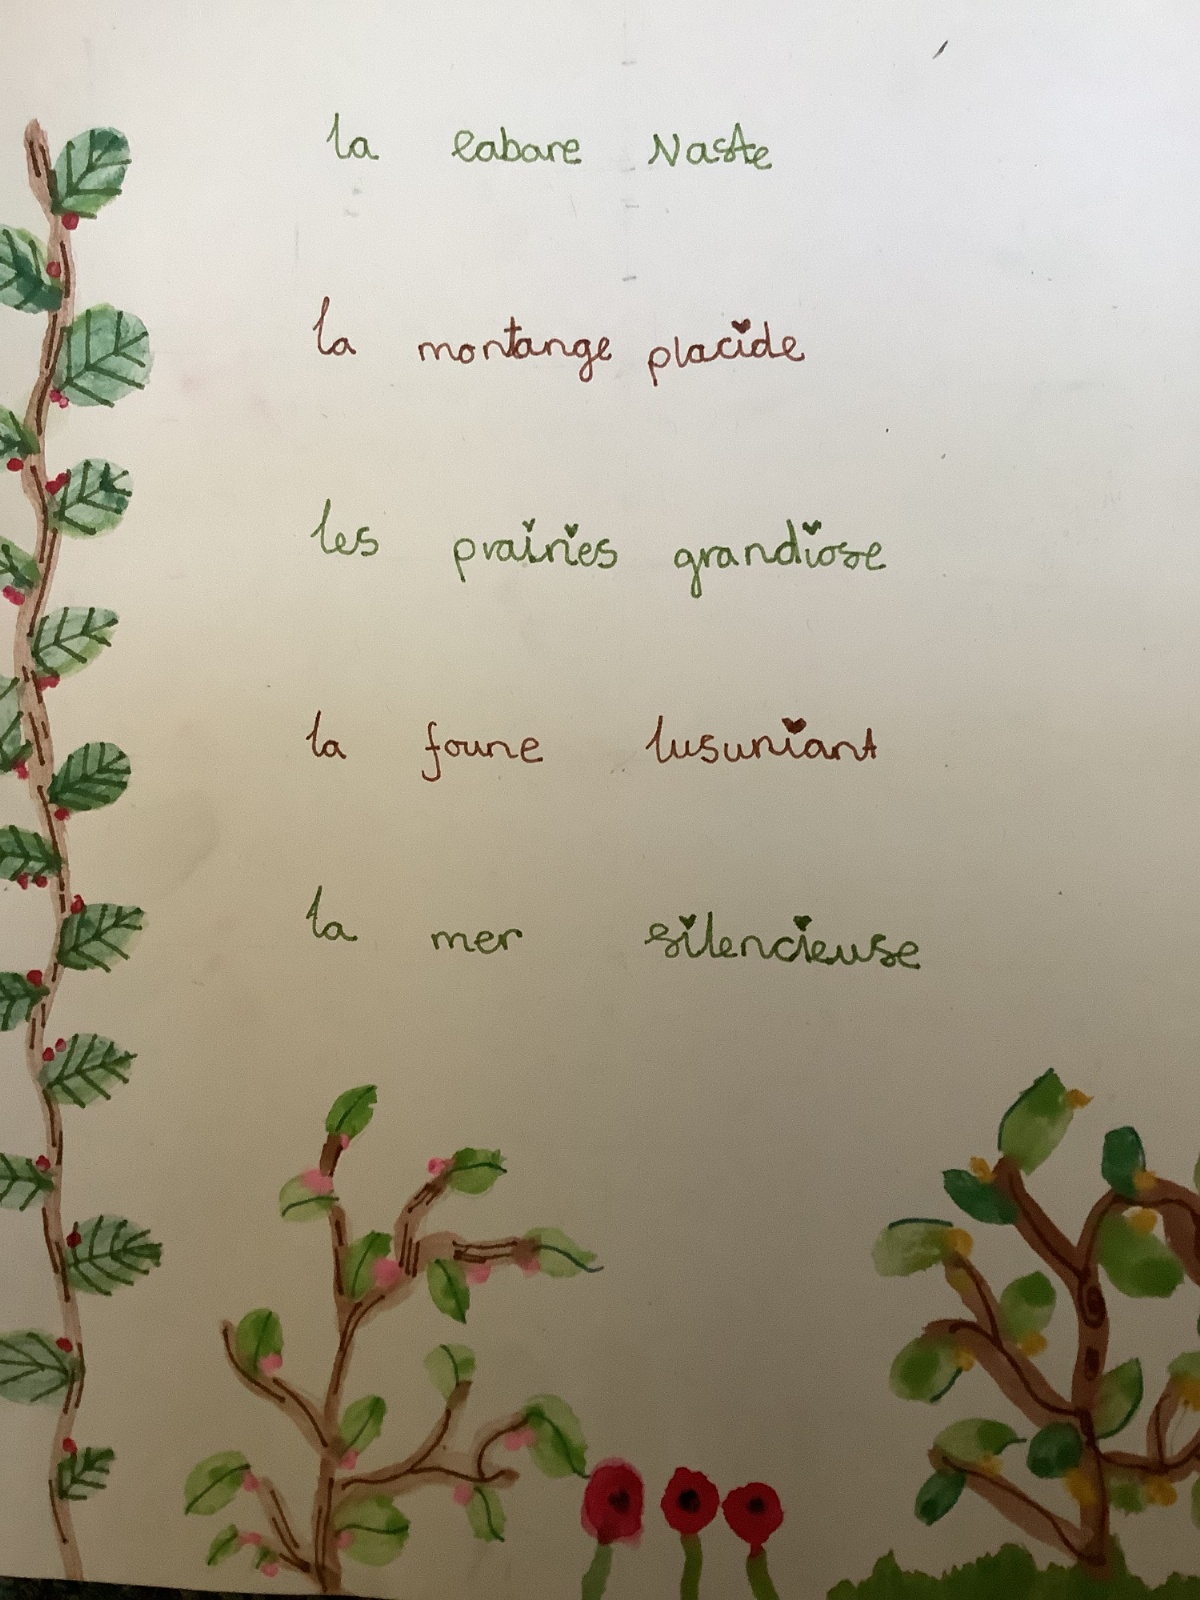 la eabare Naste
la montange placide
les prairies grandiose
la foune lusuriant
la mer silencieuse